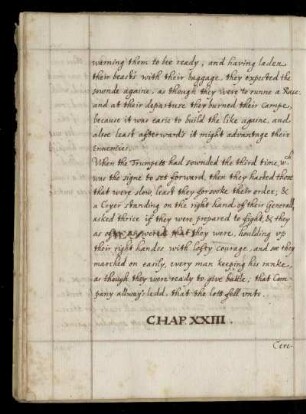 warning them to bee ready, and having laden
their beasts with their baggage they expected the
sounde againe, as though they were to runne a Race.
and at their departure they burned their campe,
because it was easie to build the like againe, and
also least afterwards it might advantage there
ennemies.
When the Trumpett had sounded the third time, wch
was the signe to set forward, then they hasted those
that were slow, least they forsooke their order, &
a Cryer standing on the right hand of their Generall
asked thrice if they were prepared to fight, & they
as often answered that they were, houlding up
their right handes with lofty courage. and so they
marched on easily, every man keeping his ranke,
as though they were ready to give battle, that Com-
pany allways that the lott fell unto.
CHAP. XXIII.